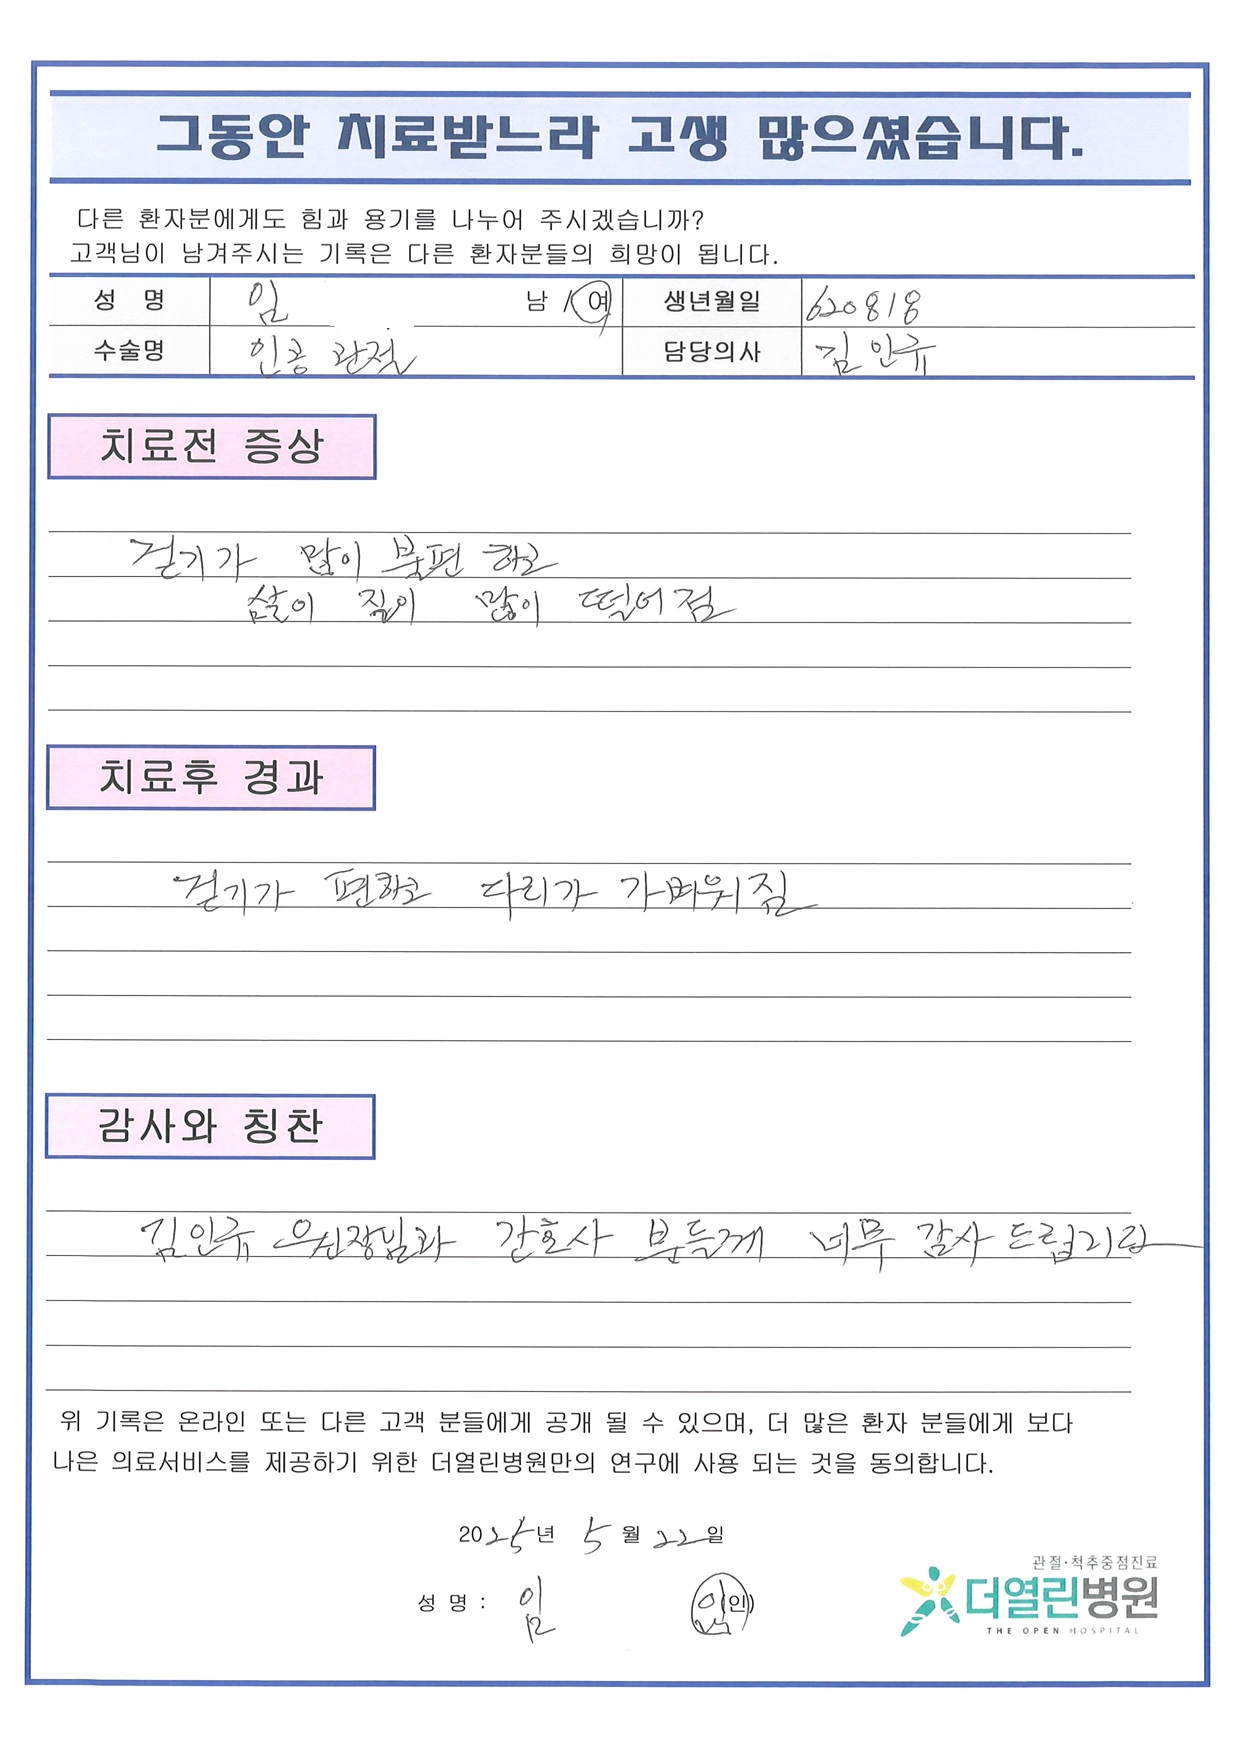 그동안 치료받느라 고생 많으셨습니다.
다른 환자분에게도 힘과 용기를 나누어 주시겠습니까?
고객님이 남겨주시는 기록은 다른 환자분들의 희망이 됩니다.
성 명 임 남 / 여 생년월일 620818
수술명 인공 관절 담당의사 김인규
치료전 증상
걷기가 많이 불편 하고
삶이 질이 많이 떨어점
치료후 경과
걷기가 편하고 다리가 가벼워짐
감사와 칭찬
김인규 원장님과 간호사 분들게 너무 감사드립니다
위 기록은 온라인 또는 다른 고객 분들에게 공개 될 수 있으며, 더 많은 환자 분들에게 보다
나은 의료서비스를 제공하기 위한 더열린병원만의 연구에 사용 되는 것을 동의합니다.
2025년 5월 22일
성 명 : 임 (인)
관절·척추중점진료
더열린병원
THE OPEN HOSPITAL